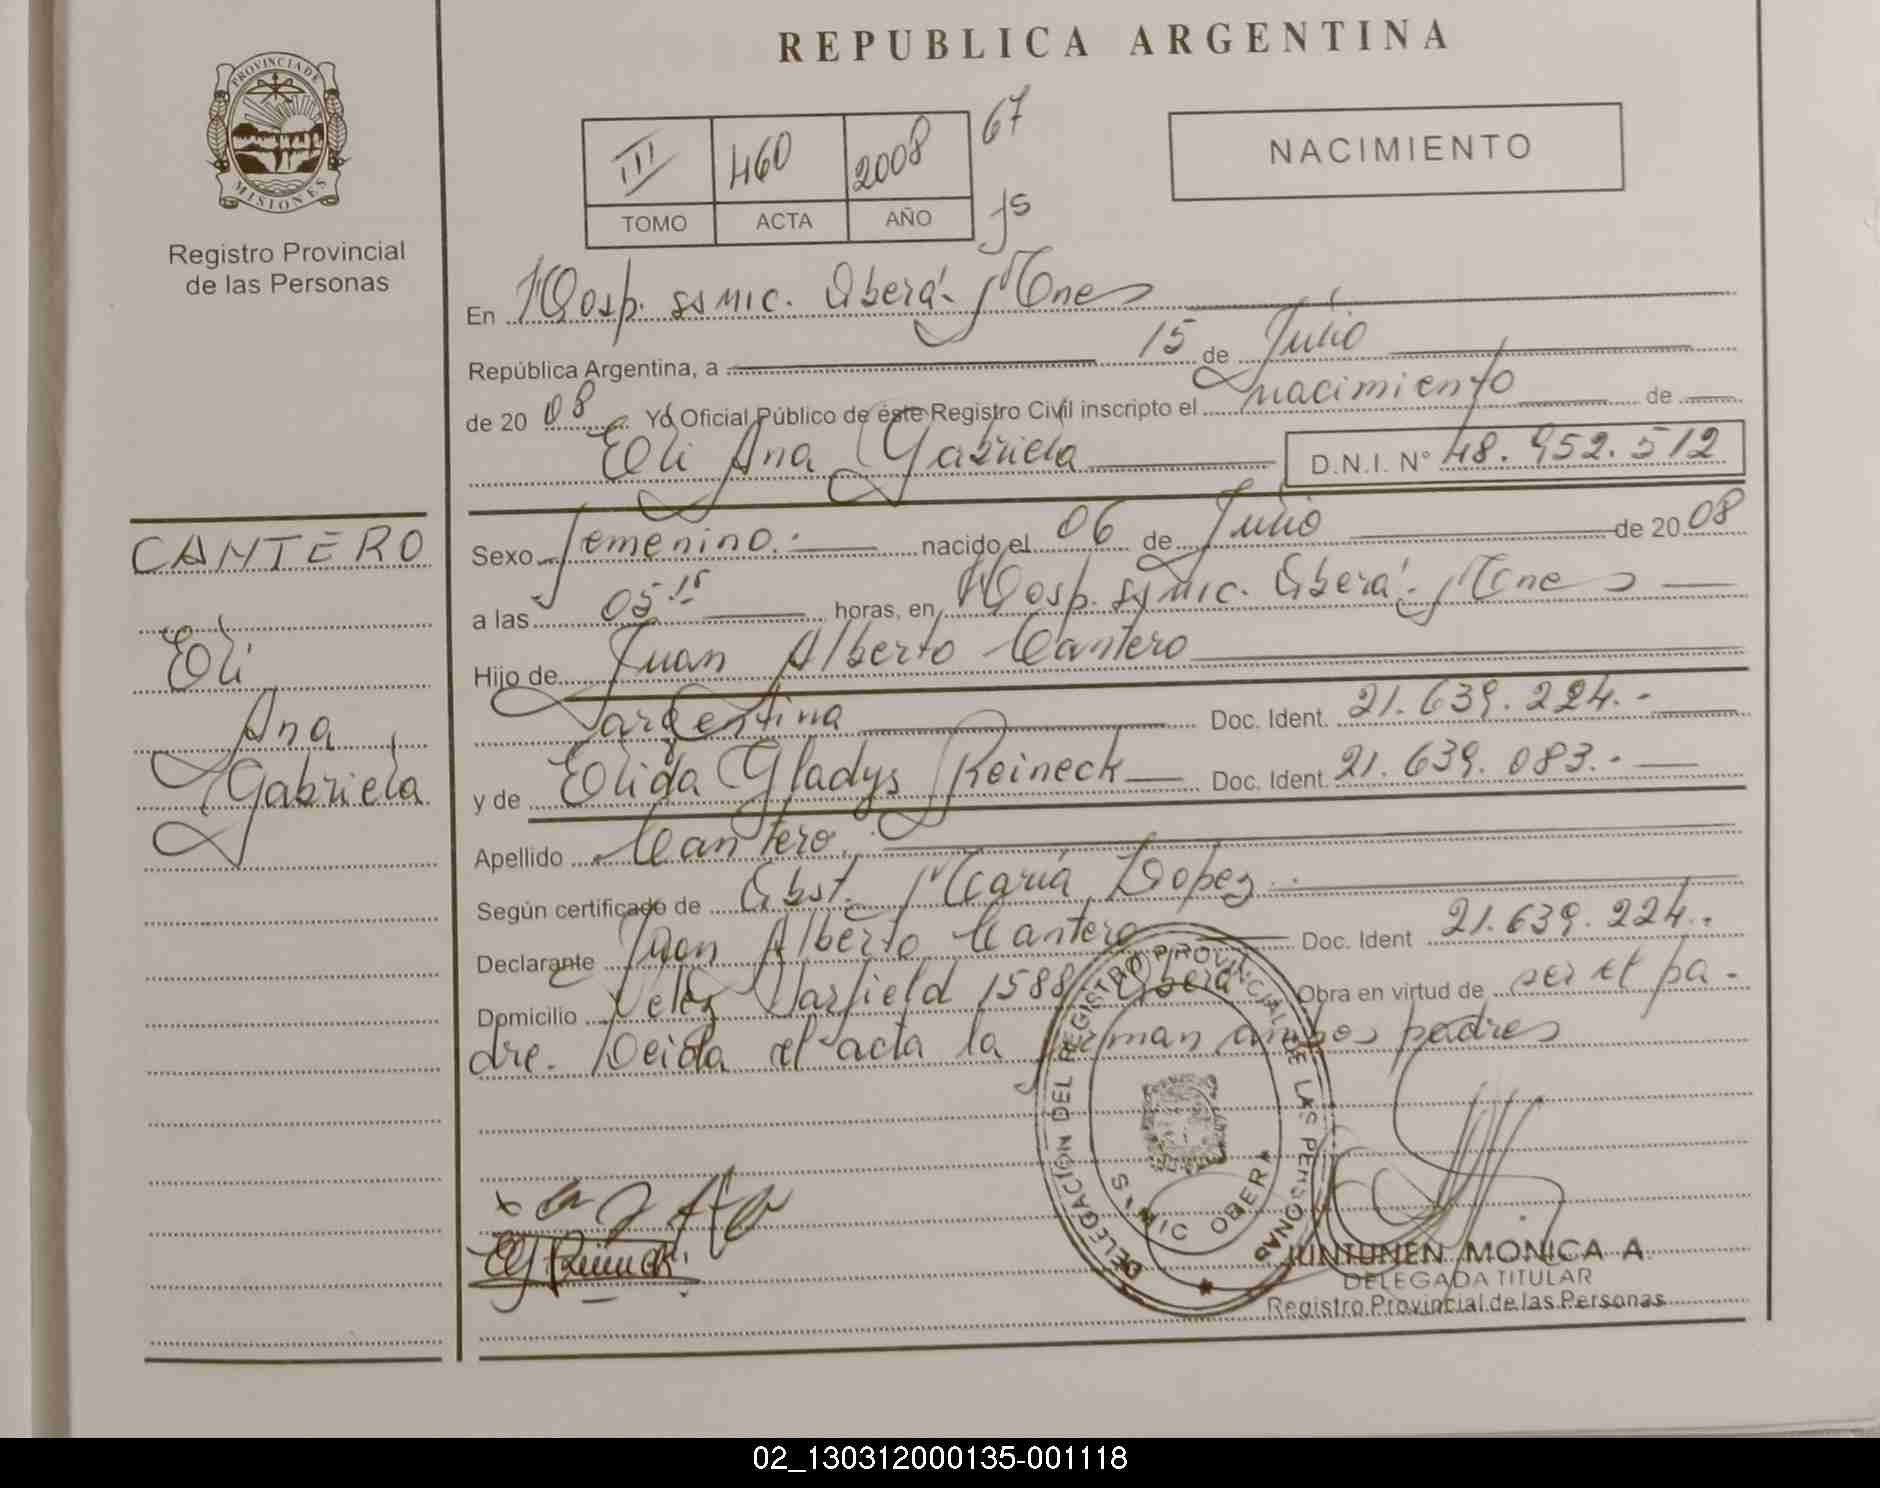 PROVINCIA DE
MISIONES
Registro Provincial
de las Personas
REPUBLICA ARGENTINA
III 460 2008 67
TOMO ACTA AÑO
NACIMIENTO
En Hosp. ssmic. Oberá - Mnes
República Argentina, a 15 de Julio
de 2008 Yo Oficial Público de éste Registro Civil inscripto el nacimiento de
Eli Ana Gabriela D.N.I. N° 48.952.512
CANTERO
Eli
Ana
Gabriela
Sexo femenino.- nacido el 06 de Julio de 2008
a las 05 15 horas, en Hosp. ssmic. Oberá - Mnes
Hijo de Juan Alberto Cantero
argentina Doc. Ident. 21.639.224.-
y de Elida Gladys Reineck Doc. Ident. 21.639.083.-
Apellido Cantero.
Según certificado de Obst. María Lopez.
Declarante Juan Alberto Cantero Doc. Ident 21.639.224.
Domicilio Velez Sarfield 1588 Oberá Obra en virtud de ser el pa-
dre. Leida el acta la firman ambos padres
DELEGACIÓN DEL REGISTRO PROVINCIAL DE LAS PERSONAS
S'MIC OBERA
JUNTUNEN MONICA A.
DELEGADA TITULAR
Registro Provincial de las Personas
02_130312000135-001118